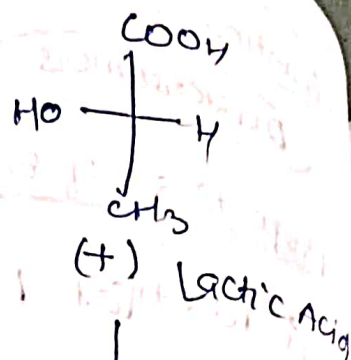 COOH
HO H
CH3
(+) Lactic Acid